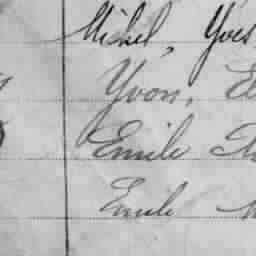 Michel, Yves
Yvon, E
Emile
Emile